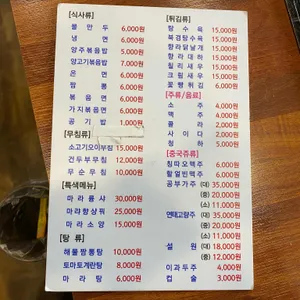 [식사류]
물 만 두 6,000원
냉 면 6,000원
양주볶음밥 5,000원
양고기볶음밥 7,000원
온 면 6,000원
짬 뽕 6,000원
볶 음 면 6,000원
가지볶음면 6,000원
공 기 밥 1,000원
[무침류]
소고기오이무침 15,000원
건두부무침 12,000원
무순무침 10,000원
[특색메뉴]
마라룽샤 30,000원
마라향샹궈 25,000원
마라소양 15,000원
[탕 류]
해물짬뽕탕 10,000원
토마토계란탕 8,000원
마 라 탕 6,000원
[튀김류]
탕 수 육 15,000원
북경탕수육 15,000원
향라닭날개 15,000원
향라대하 15,000원
칠리새우 15,000원
크림새우 15,000원
꽃빵튀김 6,000원
[주류/음료]
소 주 4,000원
맥 주 4,000원
콜 라 2,000원
사 이 다 2,000원
청 하 5,000원
[중국쥬류]
칭따오맥주 6,000원
할얼빈맥주 6,000원
공부가주 (대) 35,000원
(중) 20,000원
(소) 11,000원
연태고량주 (대) 35,000원
(중) 20,000원
(소) 11,000원
설 원 (대) 18,000원
(중) 12,000원
이과두주 4,000원
컵 술 3,000원